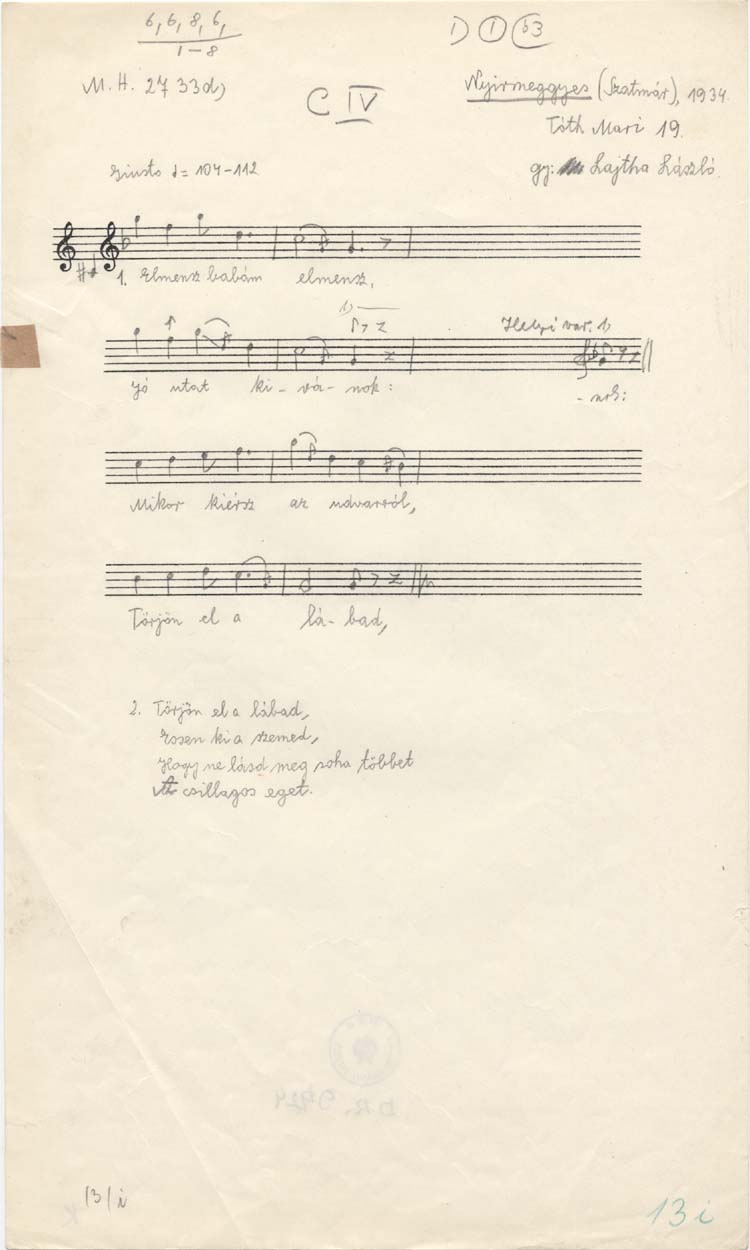 6, 6, 8, 6,
1-8
M. H. 2733d)
C IV
1) ① ♭3
Nyirmeggyes (Szatmár), 1934.
Tóth Mari 19.
gy: Lajtha László.
Giusto = 104-112
1. Elmensz babám elmensz,
1)
Helyi var. 1)
Jó utat ki-vá-nok:
-nok:
Mikor kiérsz az udvarról,
Törjön el a lá-bad,
2. Törjön el a lábad,
Essen ki a szemed,
Hogy ne lásd meg soha többet
A csillagos eget.
13/i
13i